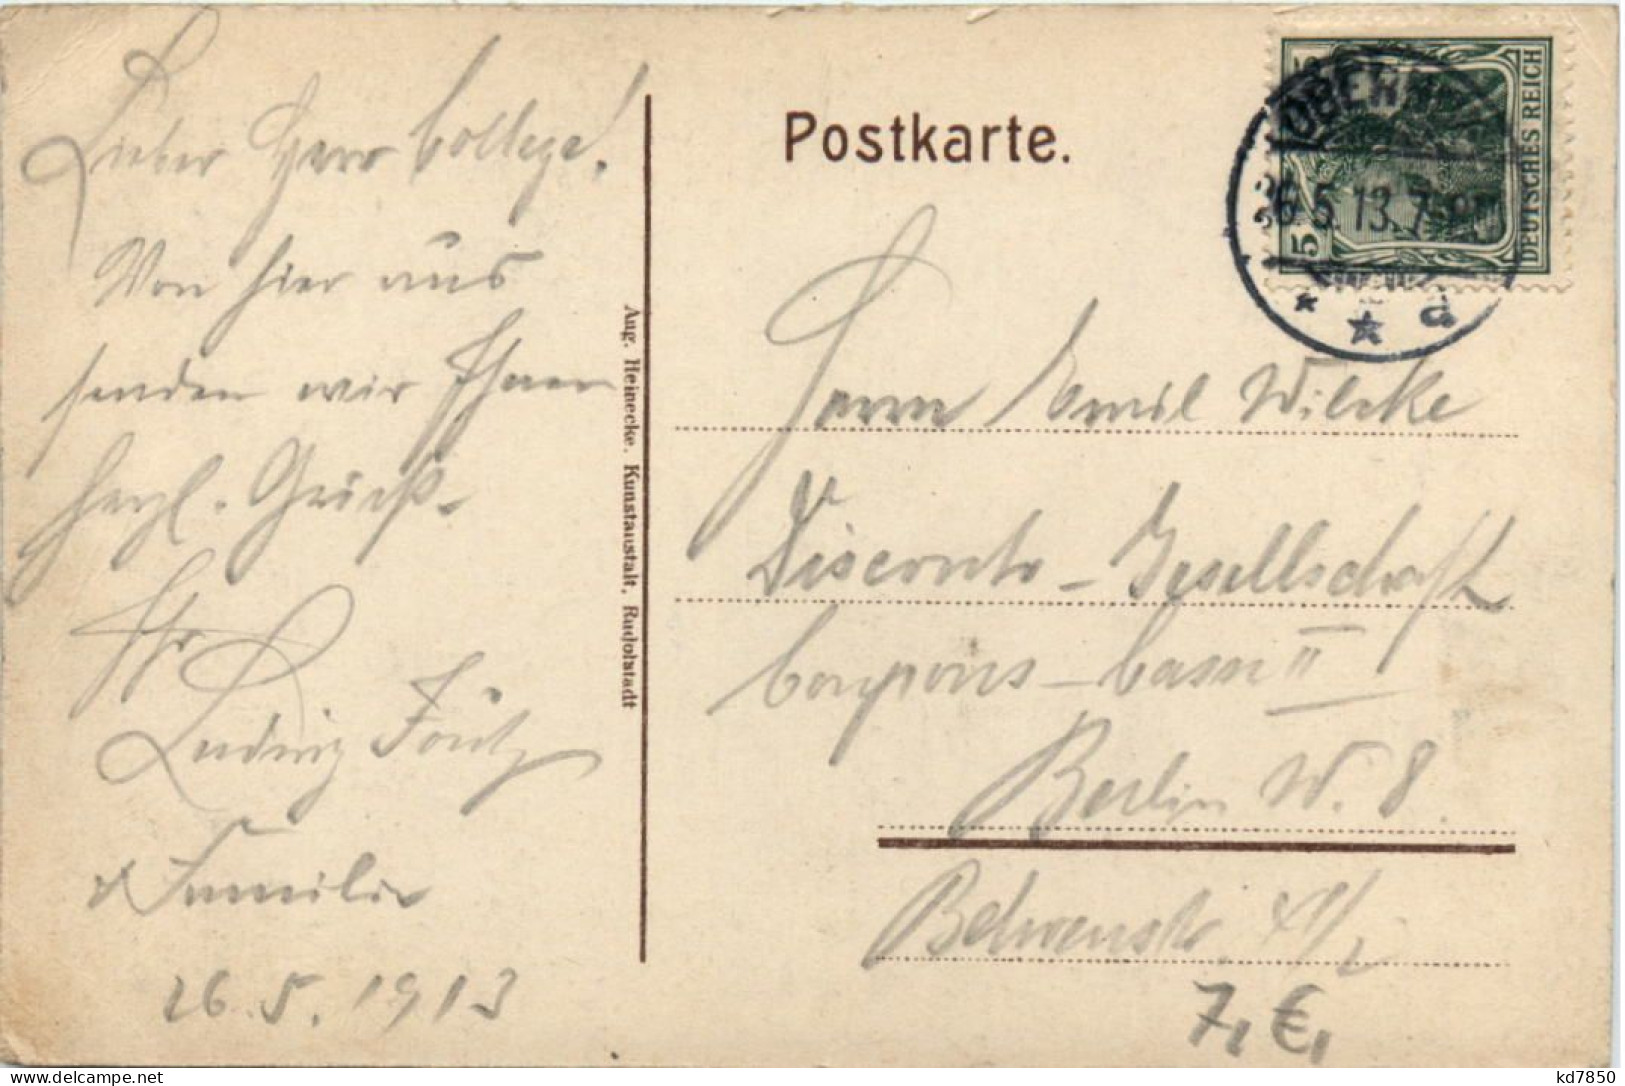 Lieber Herr College!
Von hier aus
senden wir Ihnen
herzl. Grüße.
Ihr
Ludwig
& Familie
26.5.1913
Aug. Heinecke. Kunstanstalt, Rudolstadt
Postkarte.
DEUTSCHES REICH
5
OBERH
26.5.13.7
* * d
Herrn Emil Wilcke
Disconto-Gesellschaft
Coupons-Casse II
Berlin W. 8.
Behrenstr.
7,€,
kd7850